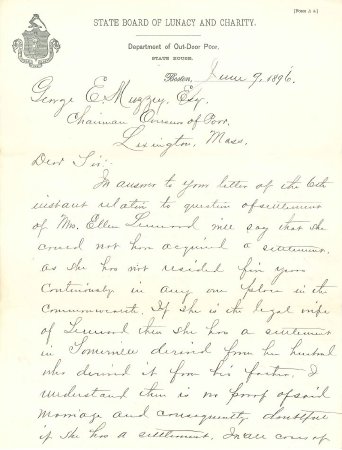 STATE BOARD OF LUNACY AND CHARITY.
[Form A A]
Department of Out-Door Poor,
STATE HOUSE,
Boston, June 9, 1896.
George E. Muzzey, Esq.
Chairman Overseers of Poor,
Lexington, Mass.
Dear Sir:-
In answer to your letter of the 6th
instant relative to question of settlement
of Mrs. Ellen Linwood will say that she
could not have acquired a settlement,
as she has not resided five years
continuously in any one place in the
Commonwealth. If she is the legal wife
of Linwood then she has a settlement
in Somerville derived from her husband
who derived it from his father. I
understand there is no proof of said
marriage and consequently doubtful
if she has a settlement. In all cases of